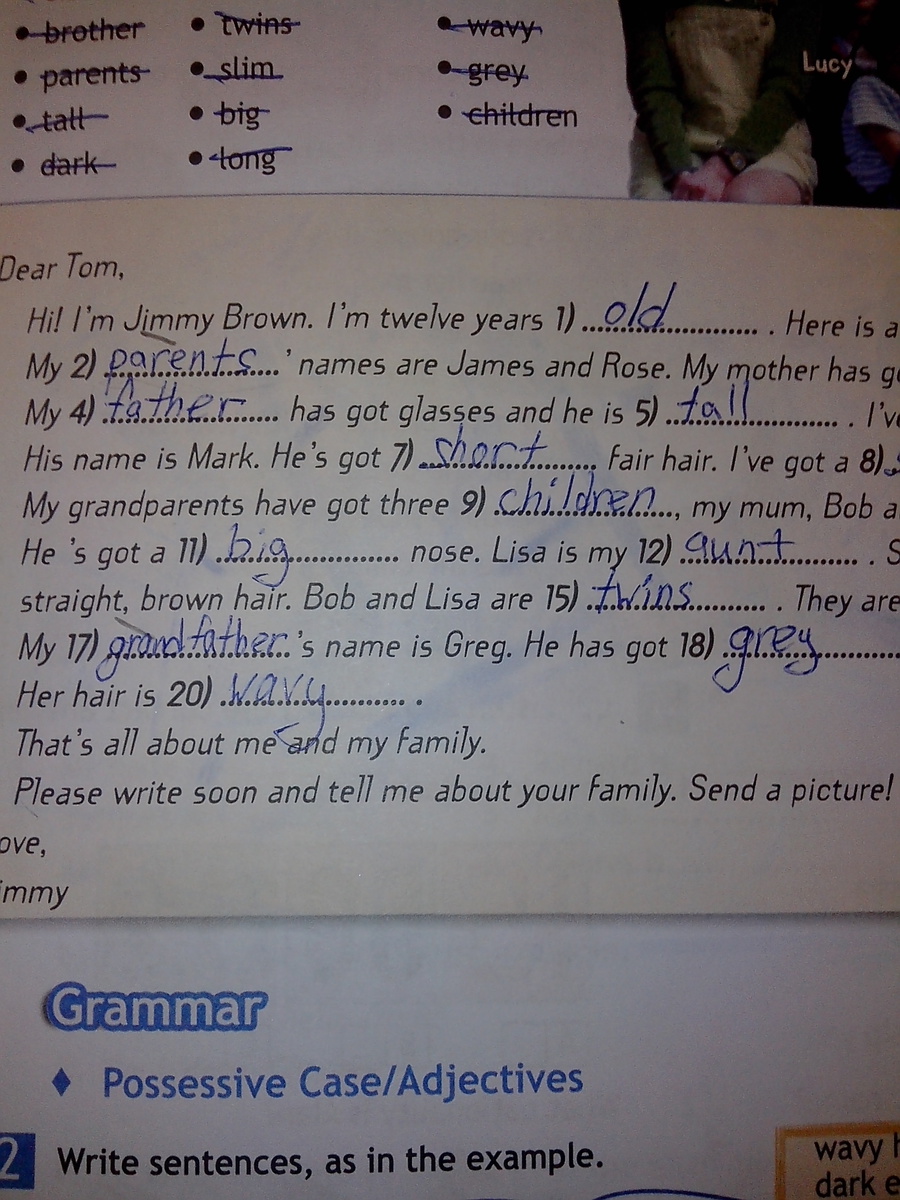 • brother • twins • wavy
• parents • slim • grey Lucy
• tall • big • children
• dark • long
Dear Tom,
Hi! I'm Jimmy Brown. I'm twelve years 1) old . Here is a
My 2) parents ' names are James and Rose. My mother has g
My 4) father has got glasses and he is 5) tall . I'v
His name is Mark. He's got 7) short Fair hair. I've got a 8)
My grandparents have got three 9) children, my mum, Bob a
He 's got a 11) big nose. Lisa is my 12) aunt . S
straight, brown hair. Bob and Lisa are 15) twins . They are
My 17) grandfather 's name is Greg. He has got 18) grey
Her hair is 20) wavy .
That's all about me and my family.
Please write soon and tell me about your family. Send a picture!
ove,
immy
Grammar
♦ Possessive Case/Adjectives
2 Write sentences, as in the example.
wavy h
dark e